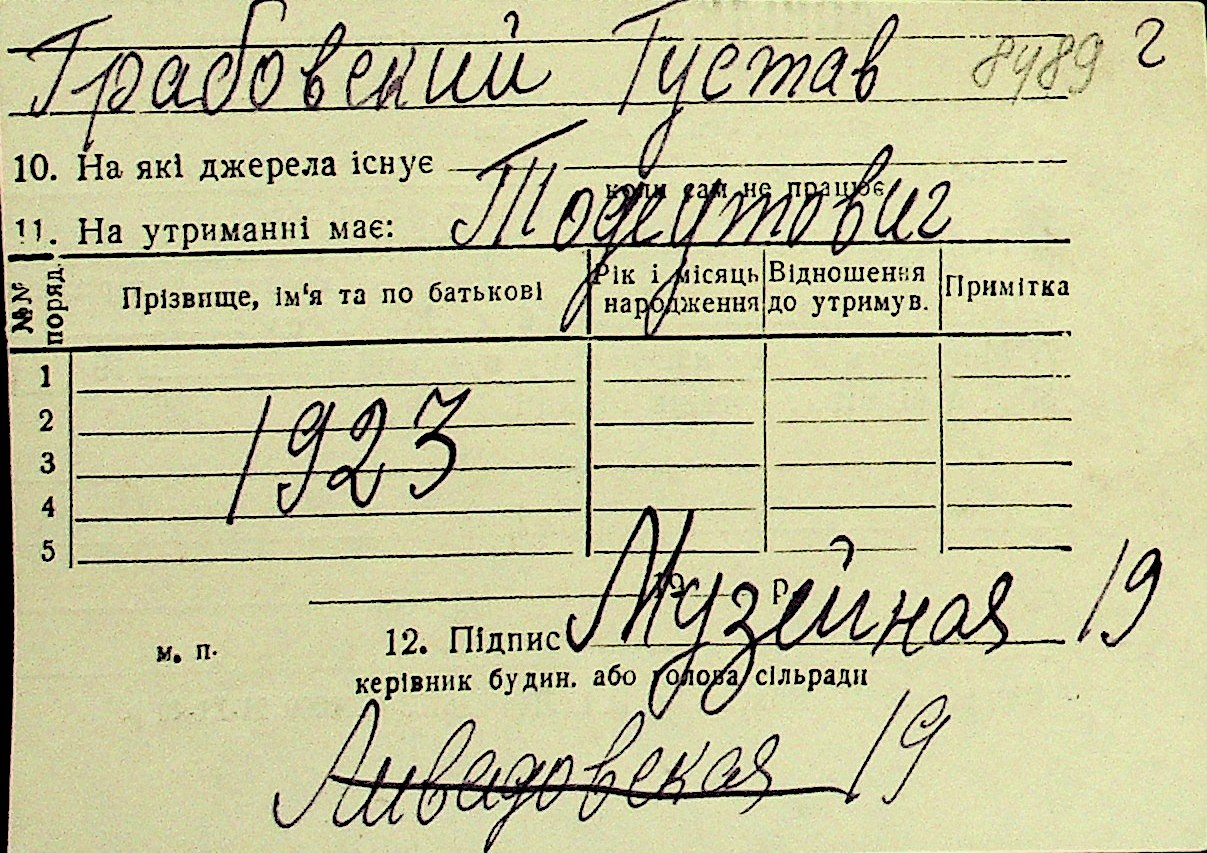 Грабовский Густав 8489 г
10. На які джерела існує
коли сам не працює
11. На утриманні має:
Тодеутович
№№ поряд.
Прізвище, ім‘я та по батькові
Рік і місяць народження
Відношення до утримув.
Примітка
1
2
3
4
5
1923
19 р.
м. п.
12. Підпис
Музейная 19
керівник будин. або голова сільради
Ливадовская 19